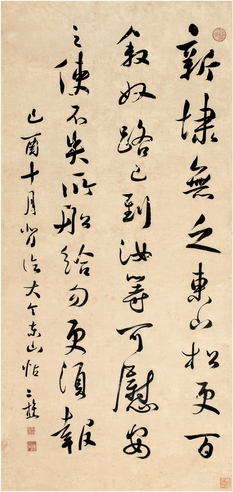 新埭無乏東山松更百
敘奴路已到汝等可慰安
之使不失所船給勿更須報
己酉十月背臨大令東山帖 二樵